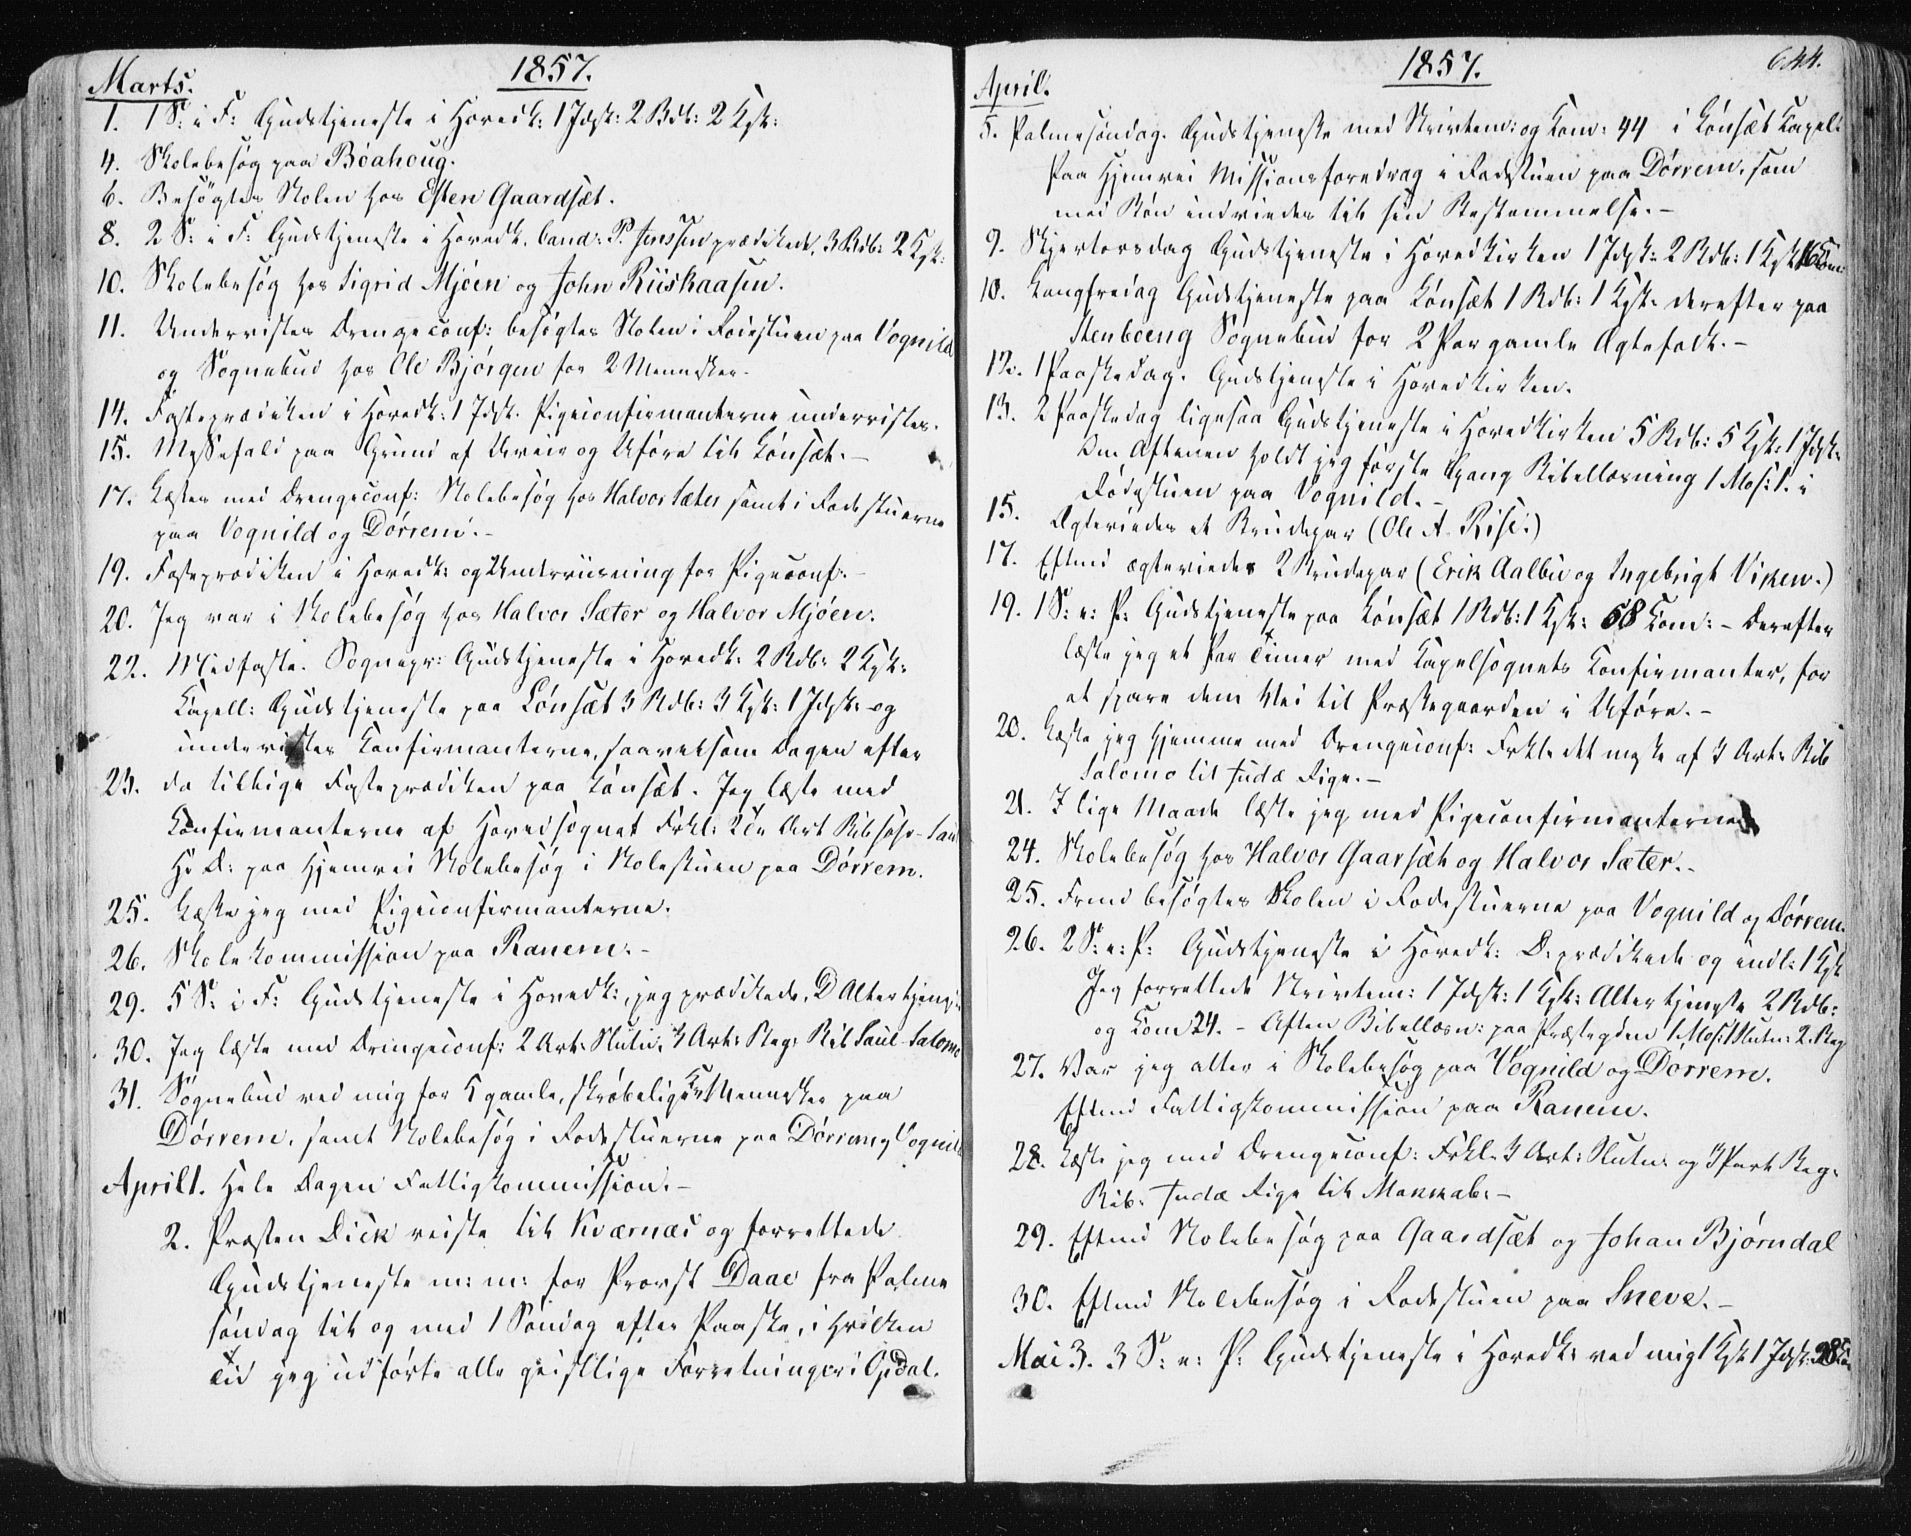 1857.
Marts.
1. 1 S: i F: Gudstjeneste i Hovedk: 1 Jdsk: 2 Bdb: 2 Kgk:
4. Skolebesøg paa Bóahoug.
6. Besøgtes Skolen hos Esten Gaardsæt.
8. 2 S: i F: Gudstjeneste i Hovedk. Cand: P. Jenssen prædikede, 3 Bdb: 2 Kgk:
10. Skolebesøg hos Sigrid Mjóen og John Riiskaasen.
11. Undervistes Drengeconf: besøgtes Skolen i Rodestuen paa Vognild
og Sognebud hos Ole Bjórgen for 2 Mennesker.
14. Fasteprædiken i Hovedk: 1 Jdsk. Pigeconfirmanterne undervistes.
15. Messefald paa Grund af Uveir og Uføre til Lónsæt.-
17. Læstes med Drengeconf: Skolebesøg hos Halvor Sæter samt i Rodestuerne
paa Vognild og Dórrem.-
19. Fasteprædiken i Hovedk: og Underviisning for Pigeconf.-
20. Jeg var i Skolebesøg hos Halvor Sæter og Halvor Mjóen.
22. Midfaste. Sognepr: Gudstjeneste i Hovedk: 2 Bdb: 2 Kgk:
Kapell: Gudstjeneste paa Lónsæt 3 Bdb: 3 Kgk: 1 Jdsk: og
undervistes Konfirmanterne, saavelsom Dagen efter
23. da tillige Fasteprædiken paa Lónsæt. Jeg læste med
Konfirmanterne af Hovedsognet Frkl: 2den Art Bib - Saul
Hr D: paa Hjemvei Skolebesøg i Skolestuen paa Dórrem.
25. Læste jeg med Pigeconfirmanterne.
26. Skolekommission paa Ranem.-
29. 5 S: i F: Gudstjeneste i Hovedk:, jeg prædikede, D Altertjeneste
30. Jeg læste med Drengeconf: 2 Art: Slutn, 3 Art: Beg: Bib Saul-Salomo
31. Sognebud ved mig for 5 gamle, skrøbelige Mennesker paa
Dórrem, samt Skolebesøg i Rodestuerne paa Dórrem og Vognild
April 1. Hele Dagen Fattigkommission.-
2. Præsten Dick reiste til Kværnæs og forrettede
Gudstjeneste m: m: for Provst Daae fra Palme
søndag til og med 1 Søndag efter Paaske, i hvilken
Tid jeg udførte alle geistlige Forretninger i Opdal.
1857. 644.
April.
5. Palmesøndag. Gudstjeneste med Skriftem: og Kom: 44 i Lónsæt Kapel.
Paa Hjemvei Missionsforedrag i Rodestuen paa Dórrem, som
med Bøn indviedes til sin Bestemmelse.-
9. Skjertorsdag Gudstjeneste i Hovedkirken 1 Jdsk: 2 Bdb: 1 Kgk 16 Kom:
10. Langfredag Gudstjeneste paa Lónsæt 1 Bdb: 1 Kgk: derefter paa
Stenboeng Sognebud for 2 Par gamle Ægtefolk.-
12. 1 Paaskedag. Gudstjeneste i Hovedkirken.
13. 2 Paaskedag ligesaa Gudstjeneste i Hovedkirken 5 Bdb: 5 Kgk: 1 Jdsk:
Om Aftenen holdt jeg første Gang Bibellæsning 1 Mos: 1. i
Rodestuen paa Vognild.-
15. Ægteviedes et Brudepar (Ole A. Rise.)
17. Eftmd ægteviedes 2 Brudepar (Erik Aalbu og Ingebrigt Viken.)
19. 1 S: e: P: Gudstjeneste paa Lónsæt 1 Bdb: 1 Kgk: 68 Kom: - Derefter
læste jeg et Par Timer med Kapelsognets Konfirmanter, for
at spare dem Vei til Præstegaarden i Uføre.-
20. Læste jeg hjemme med Drengeconf: Frkl: det meste af 3 Art: Bib
Salomo til Judæ Rige.-
21. I lige Maade læste jeg med Pigeconfirmanterne
24. Skolebesøg hos Halvor Gaarsæt og Halvor Sæter.-
25. Frmd besøgtes Skolen i Rodestuerne paa Vognild og Dórrem.
26. 2 S: e: P: Gudstjeneste i Hovedk: D. prædikede og indl: 1 Kgk
Jeg forrettede Skriftem: 1 Jdsk: 1 Kgk: Altertjeneste 2 Bdb:
og Kom 24. - Aften Bibellæsn: paa Præstegden 1 Mos: 1 Slutn: 2. Beg
27. Var jeg atter i Skolebesøg paa Vognild og Dórrem.
Eftmd Fattigkommission paa Ranem.
28. Læste jeg med Drengeconf: Frkl. 3 Art: Slutn: og 3 Part Beg:
Bib: Judæ Rige til Makkab:-
29. Eftmd Skolebesøg paa Gaardsæt og Johan Bjórndal
30. Eftmd Skolebesøg i Rodestuen paa Sneve.-
Mai 3. 3 S: e: P: Gudstjeneste i Hovedk: ved mig 1 Kgk 1 Jdsk: 28 Kom